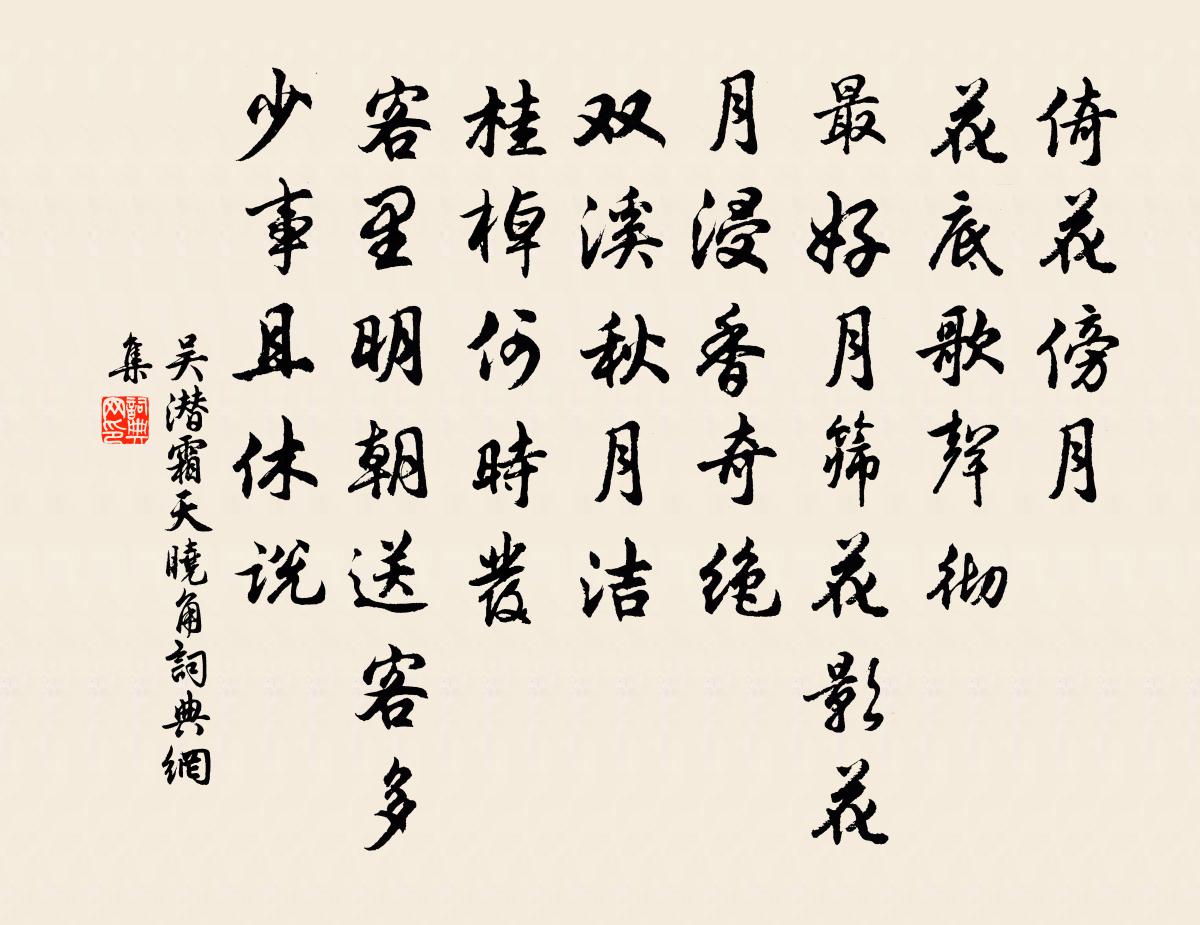 倚花傍月
花底歌聲彻
最好月筛花影花
月浸香奇绝
双溪秋月洁
桂棹何時發
客里明朝送客多
少事且休说
吴潜霜天曉角詞典網
集
詞典
网印